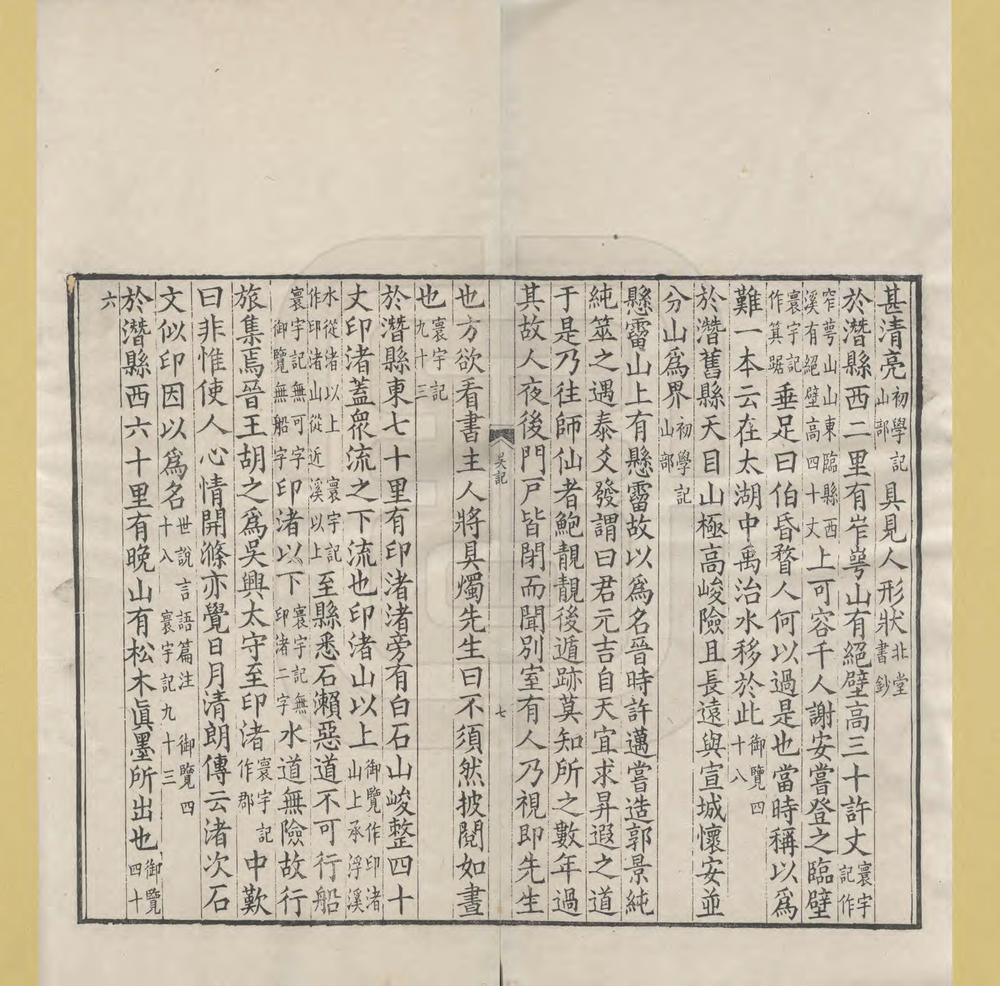 甚清亮初學記山部具見人形狀北堂書鈔
於潛縣西二里有岝㟧山有絕壁高三十許丈寰宇記作
窄蕚山山東臨縣西溪有絕壁高四十丈上可容千人謝安嘗登之臨壁
寰宇記作箕踞垂足曰伯昏瞀人何以過是也當時稱以爲
難一本云在太湖中禹治水移於此御覽四十八
於潛舊縣天目山極高峻險且長遠與宣城懷安並
分山爲界初學記山部
懸霤山上有懸霤故以爲名晉時許邁嘗造郭景純
純筮之遇泰爻發謂曰君元吉自天宜求昇遐之道
于是乃往師仙者鮑靚靚後遁跡莫知所之數年過
其故人夜後門戸皆閉而聞別室有人乃視即先生
吳記
七
也方欲看書主人將具燭先生曰不須然披閱如晝
也寰宇記九十三
於潛縣東七十里有印渚渚旁有白石山峻整四十
丈印渚蓋衆流之下流也印渚山以上御覽作印渚山上承浮溪
水從渚以上作印渚山從近溪以上寰宇記至縣悉石瀨惡道不可行船
寰宇記無可字御覽無船字印渚以下寰宇記無印渚二字水道無險故行
旅集焉晉王胡之爲吳興太守至印渚寰宇記作郡中歎
曰非惟使人人心情開滌亦覺日月清朗傳云渚次石
文似印因以爲名世說言語篇注御覽四十八寰宇記九十三
於潛縣西六十里有晚山有松木眞墨所出也御覽四十
六